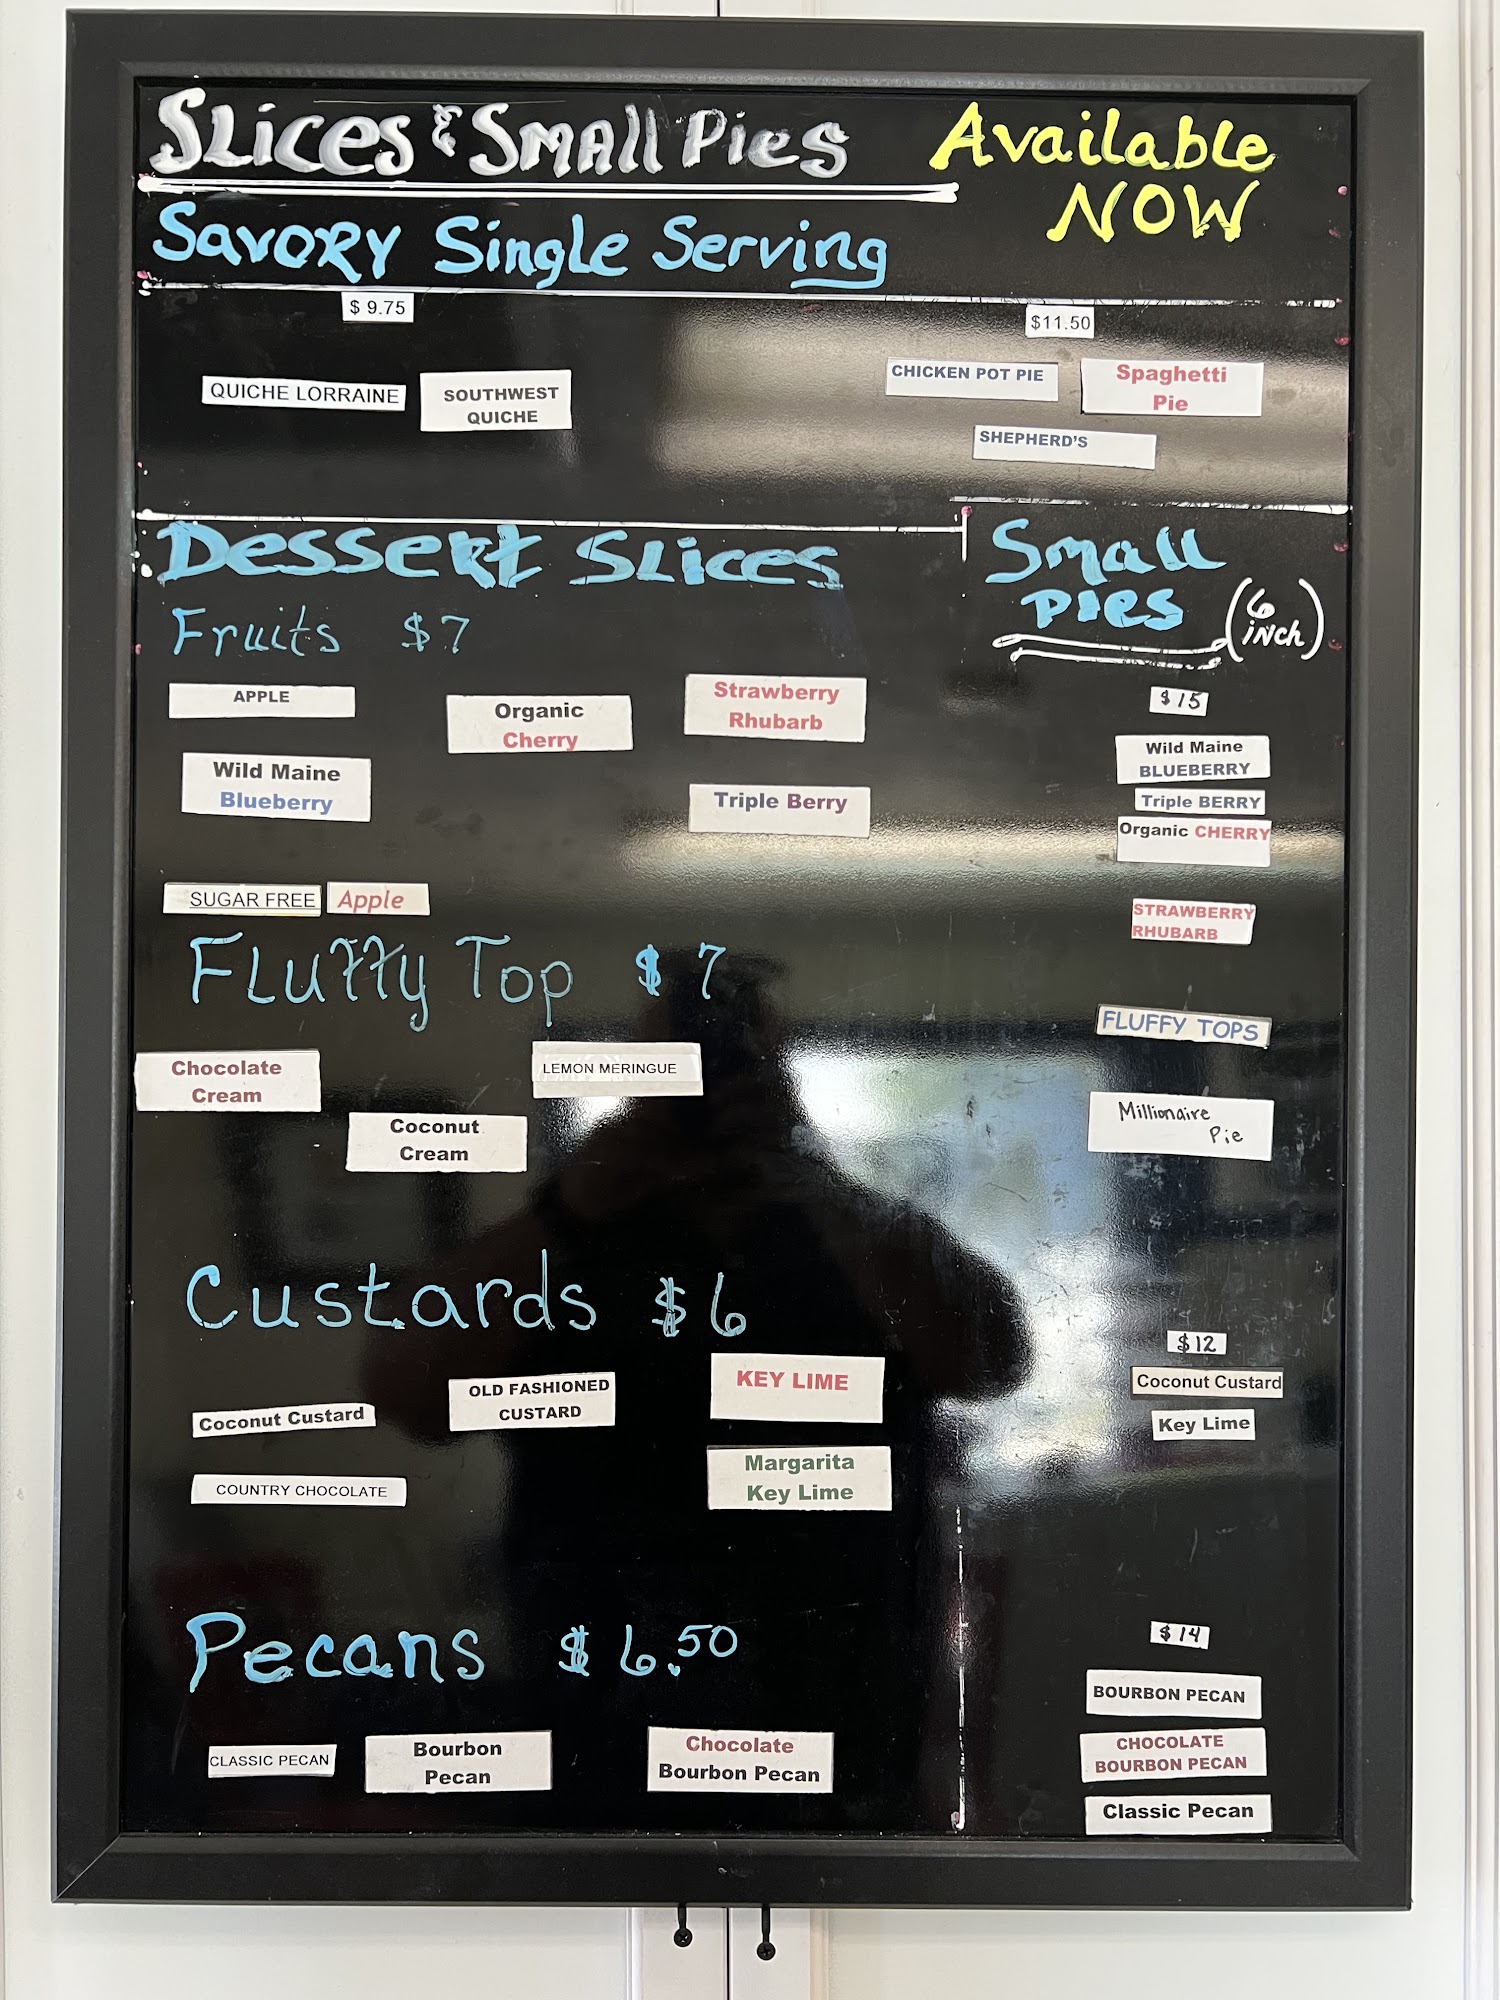 SLices & Small Pies
Available
NOW
Savory Single Serving
$ 9.75
$11.50
QUICHE LORRAINE
SOUTHWEST
QUICHE
CHICKEN POT PIE
Spaghetti
Pie
SHEPHERD'S
Dessert Slices
Fruits $7
APPLE
Organic
Cherry
Strawberry
Rhubarb
Wild Maine
Blueberry
Triple Berry
SUGAR FREE Apple
Fluffy Top $7
Chocolate
Cream
LEMON MERINGUE
Coconut
Cream
Custards $6
Coconut Custard
OLD FASHIONED
CUSTARD
KEY LIME
COUNTRY CHOCOLATE
Margarita
Key Lime
Pecans $6.50
CLASSIC PECAN
Bourbon
Pecan
Chocolate
Bourbon Pecan
Small
Pies
(6
inch)
$15
Wild Maine
BLUEBERRY
Triple BERRY
Organic CHERRY
STRAWBERRY
RHUBARB
FLUFFY TOPS
Millionaire
Pie
$12
Coconut Custard
Key Lime
$14
BOURBON PECAN
CHOCOLATE
BOURBON PECAN
Classic Pecan